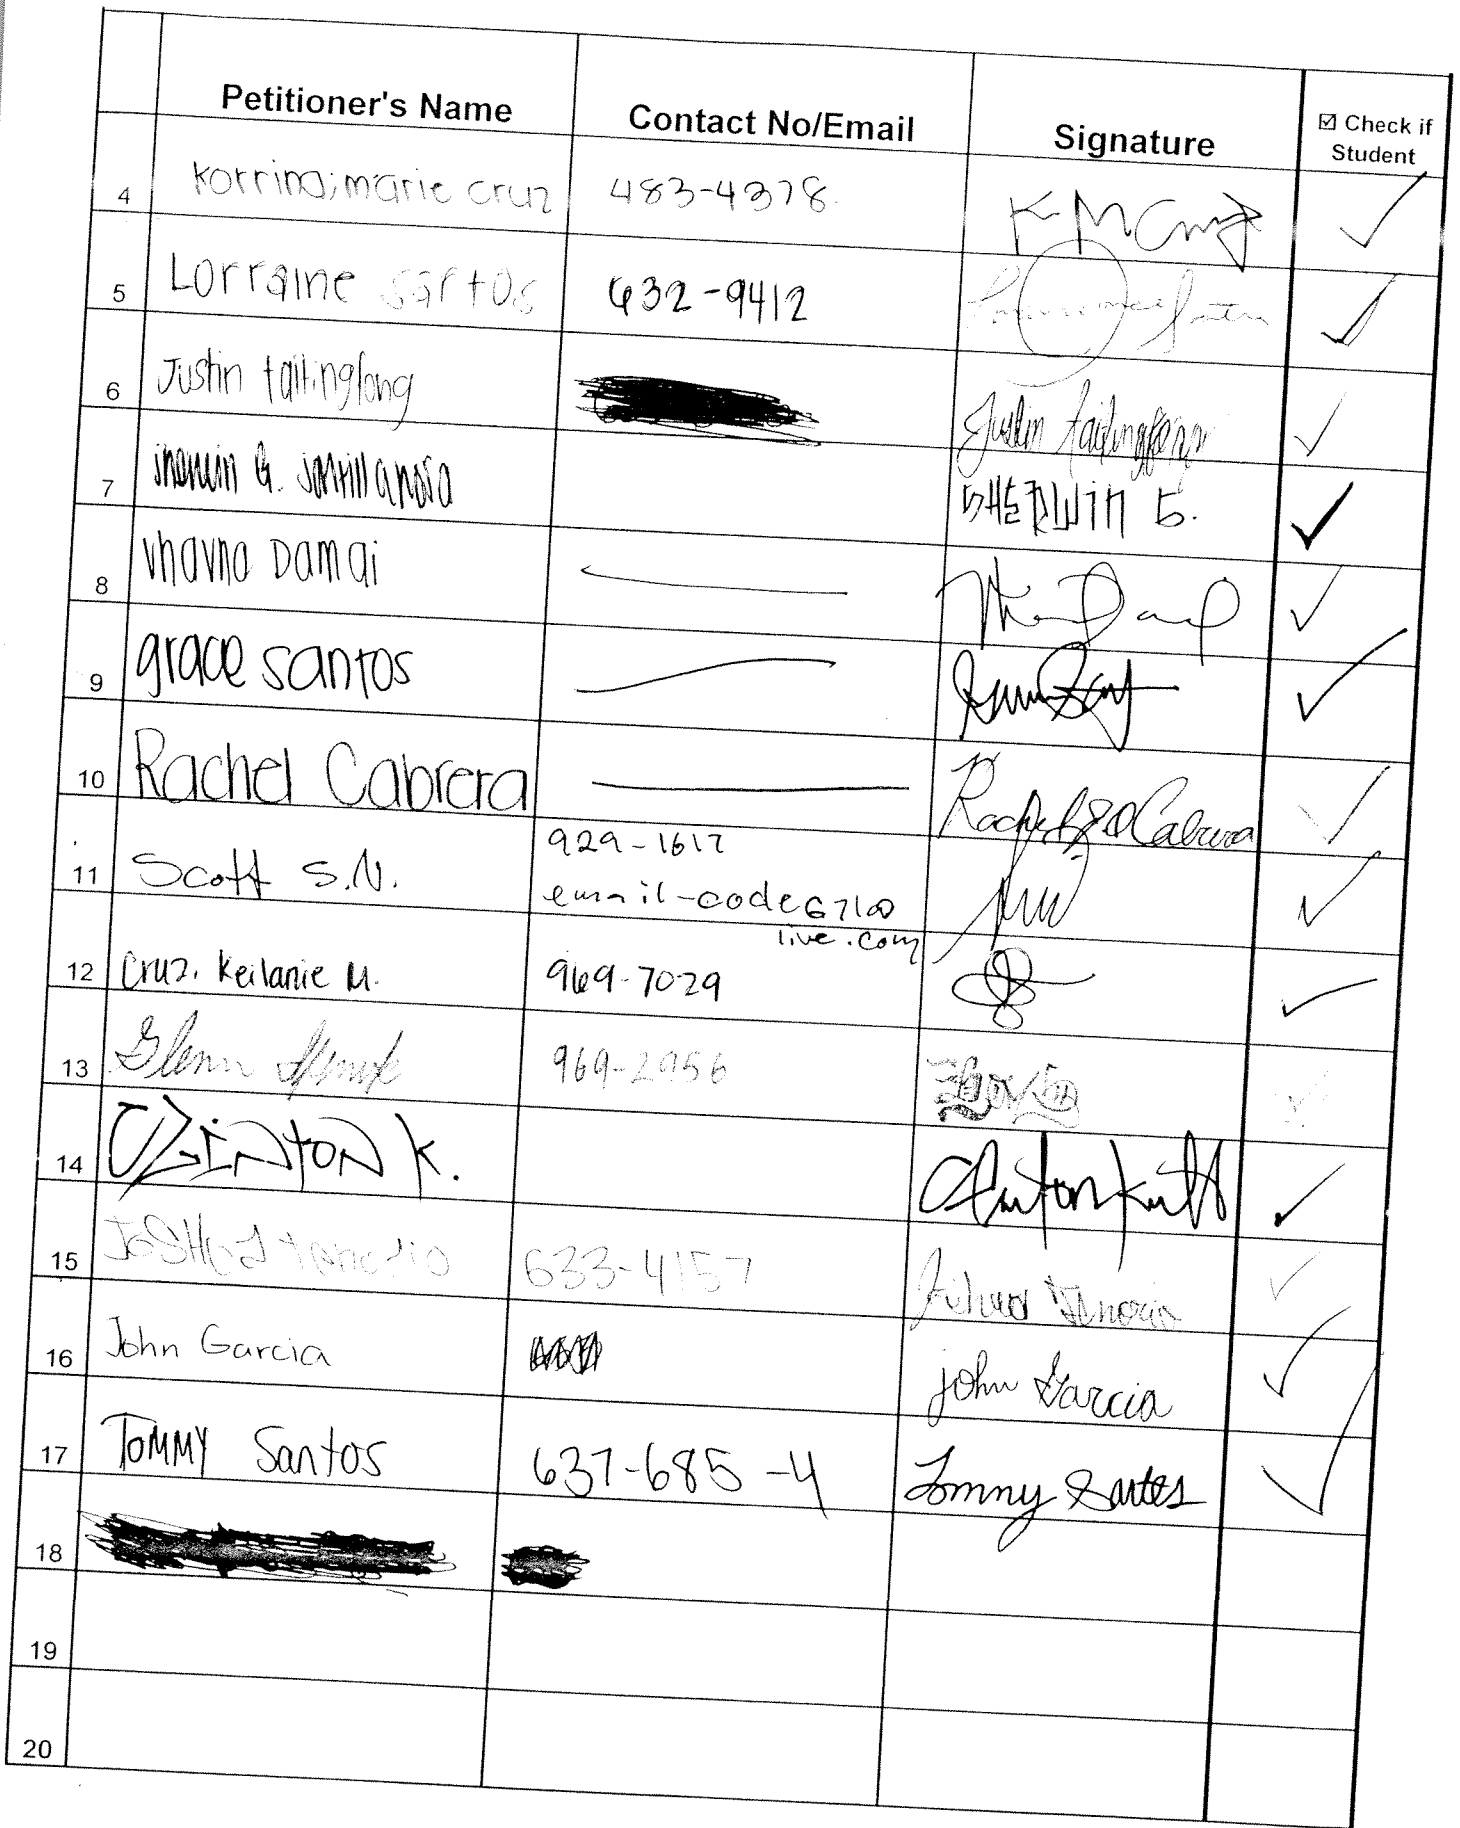 Petitioner's Name Contact No/Email Signature ☑ Check if
Student
4 Korrina, marie cruz 483-4378 K M Cruz ✓
5 Lorraine santos 632-9412 ✓
6 Justin taitingfong Justin taitingfong ✓
7 G. SHERWIN S. ✓
8 Damai ✓
9 grace santos ✓
10 Rachel Cabrera Rachel Cabrera ✓
11 Scott S.N. 929-1617 ✓
email-code6710
live.com
12 Cruz, Keilanie M. 969-7029 ✓
13 Glenn 969-2956 ✓
14 CLiNTON K. ✓
15 633-4157 Tenorio ✓
16 John Garcia john Garcia ✓
17 TOMMY Santos 637-685-4 Tommy Santos ✓
18
19
20